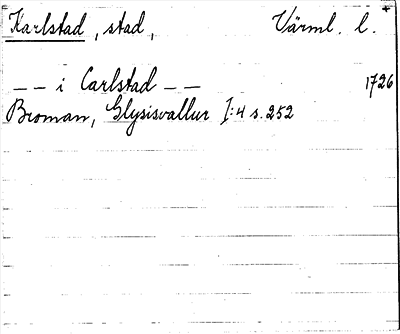 Karlstad, stad, Värml. l.
— — i Carlstad — — 1726
Broman, Glysisvallur I:4 s. 252